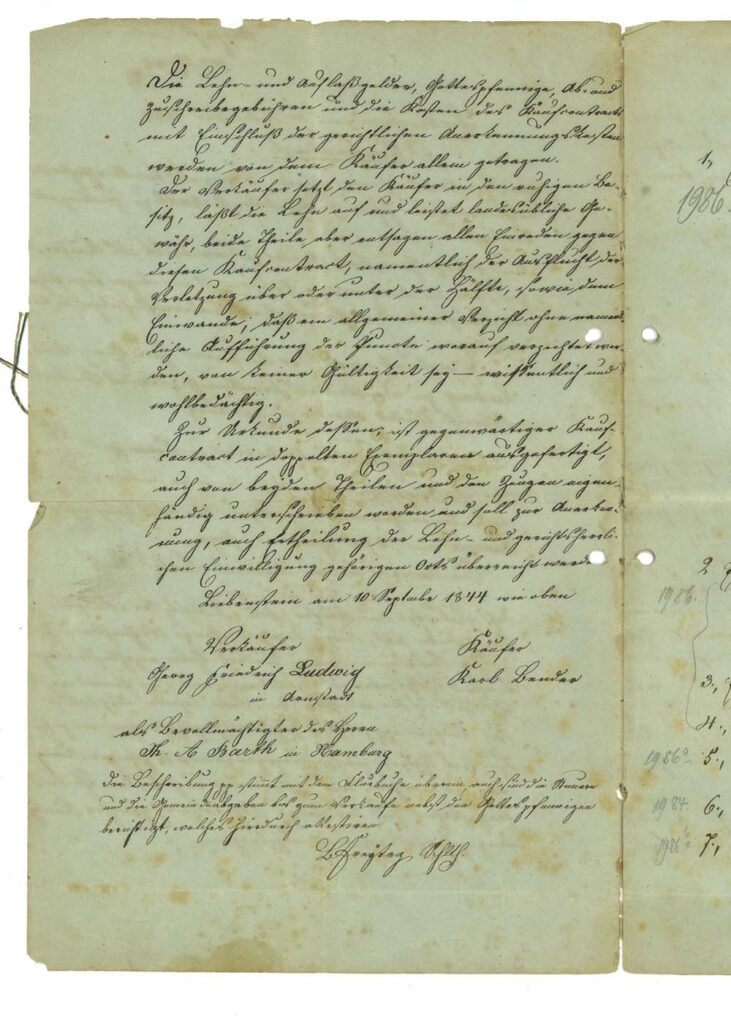 Die Lehn- und Auflaßgelder, Gottespfennige, Ab- und
Zuschreibegebühren und die Kosten des Kaufcontracts
mit Einschluß der gerichtlichen Anerkennungskosten
werden von dem Käufer allein getragen.
Der Verkäufer setzt den Käufer in den ruhigen Be-
sitz, läßt die Lehn auf und leistet landesübliche Ge-
währ, beide Theile aber entsagen allen Einreden gegen
diesen Kaufcontract, namentlich der Ausflucht der
Verletzung über oder unter der Hälfte, sowie dem
Einwande, daß ein allgemeiner Verzicht ohne nament-
liche Aufführung der Puncte worauf verzichtet wor-
den, von keiner Gültigkeit sey — wissentlich und
wohlbedächtig.
Zur Urkunde dessen, ist gegenwärtiger Kauf-
contract in doppelten Exemplaren ausgefertigt,
auch von beyden Theilen und den Zeugen eigen-
händig unterschrieben worden und soll zur Anerken-
nung, auch Ertheilung der Lehn- und gerichtsherrli-
chen Einwilligung gehörigen Orts überreicht werde
Liebenstein am 10 Septbr 1844 wie oben
Verkäufer
Georg Friedrich Ludwig
in Arnstadt
als Bevollmächtigter des Herrn
Th. A Barth in Hamburg
Käufer
Karl Bender
Die Beschreibung pp stimmt mit dem Flurbuche überein, auch sind die Steuern
und die Gemeindeabgaben bis zum Verkaufe nebst den Gottespfennigen
berichtigt, welches hierdurch attestiren
Freytag Schlth.
1.,
1986.
2
1986.
3.,
4.,
1986a. 5.,
1984. 6.,
1986b 7.,